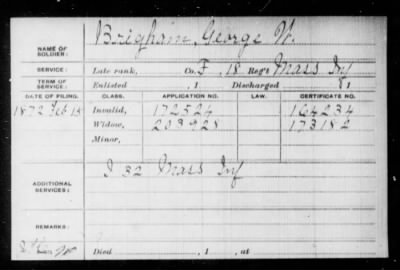 NAME OF SOLDIER: Brigham, George W.
SERVICE: Late rank, Co. F, 18 Reg't Mass Inf
TERM OF SERVICE: Enlisted , 1 Discharged , 1
DATE OF FILING. CLASS. APPLICATION NO. LAW. CERTIFICATE NO.
1872 Feb 15 Invalid, 172524 164234
Widow, 203928 173182
Minor,
ADDITIONAL SERVICES: I 32 Mass Inf
REMARKS:
Died , 1 , at